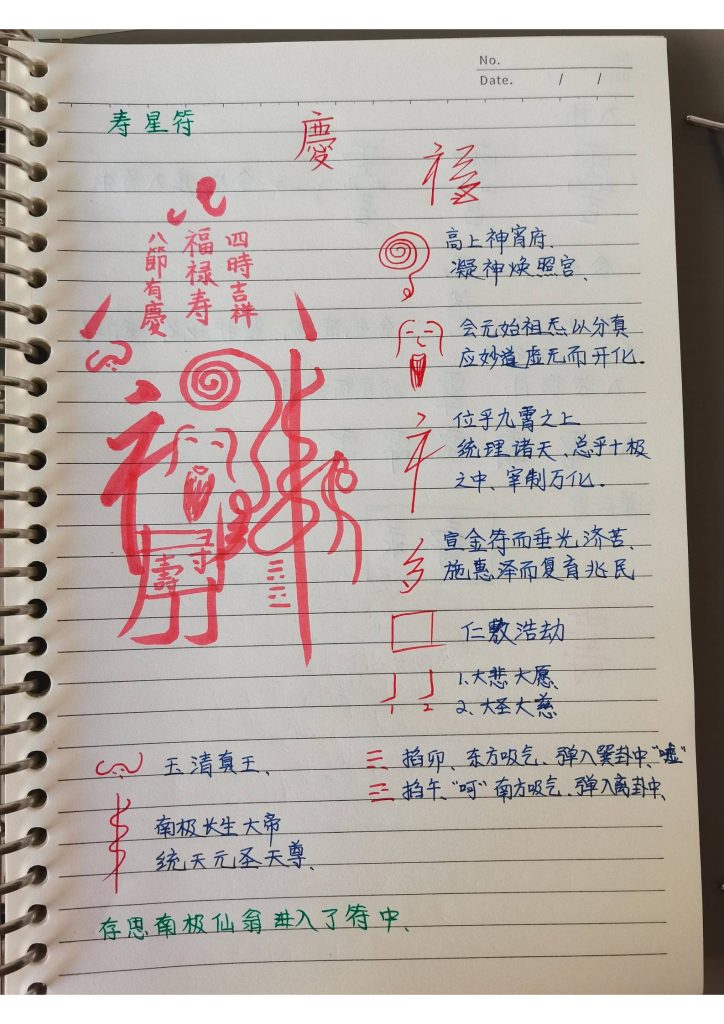 No.
Date. / /
寿星符
慶
福
四時吉祥
福禄寿
八節有慶
壽
高上神宵府、
凝神焕照宫、
会元始祖炁以分真
应妙道虚无而开化。
位乎九霄之上
统理诸天、总乎十极
之中、宰制万化。
宣金符而垂光济苦、
施惠泽而复育兆民
仁敷浩劫
1、大悲大愿、
2、大圣大慈
1 2
玉清真王、
☴ 掐卯、东方吸气、弹入巽卦中、“嘘”
☲ 掐午、“呵”南方吸气、弹入离卦中、
南极长生大帝
统天元圣天尊、
存思南极仙翁进入了符中、